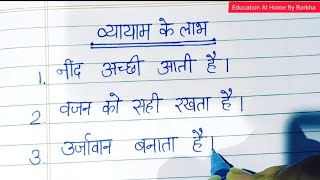 Education At Home By Barkha
व्यायाम के लाभ
1. नींद अच्छी आती है।
2. वजन को सही रखता है।
3. उर्जावान बनाता है।